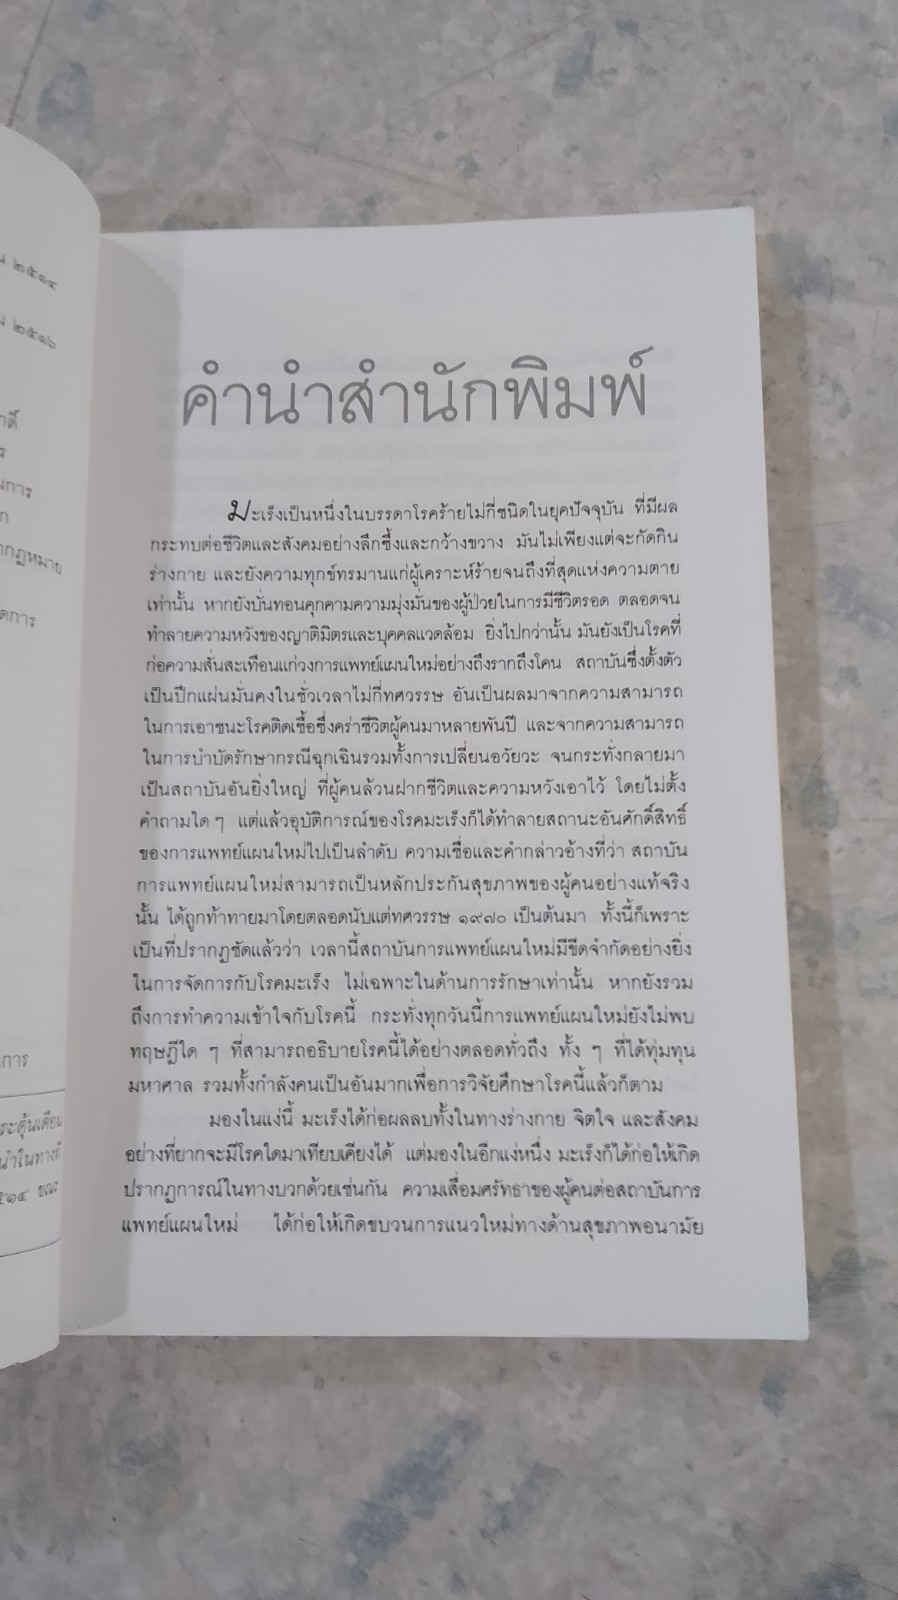 น ๒๕๑๔
ม ๒๕๑๖
าติ์
ร
มการ
ก
ากฎหมาย
ัดการ
นการ
ระตุ้นเตือน
นำในทางที่
๕๑๔ ขณะ
คำนำสำนักพิมพ์
มะเร็งเป็นหนึ่งในบรรดาโรคร้ายไม่กี่ชนิดในยุคปัจจุบัน ที่มีผล
กระทบต่อชีวิตและสังคมอย่างลึกซึ้งและกว้างขวาง มันไม่เพียงแต่จะกัดกิน
ร่างกาย และยังความทุกข์ทรมานแก่ผู้เคราะห์ร้ายจนถึงที่สุดแห่งความตาย
เท่านั้น หากยังบั่นทอนคุกคามความมุ่งมั่นของผู้ป่วยในการมีชีวิตรอด ตลอดจน
ทำลายความหวังของญาติมิตรและบุคคลแวดล้อม ยิ่งไปกว่านั้น มันยังเป็นโรคที่
ก่อความสั่นสะเทือนแก่วงการแพทย์แผนใหม่อย่างถึงรากถึงโคน สถาบันซึ่งตั้งตัว
เป็นปึกแผ่นมั่นคงในชั่วเวลาไม่กี่ทศวรรษ อันเป็นผลมาจากความสามารถ
ในการเอาชนะโรคติดเชื้อซึ่งคร่าชีวิตผู้คนมาหลายพันปี และจากความสามารถ
ในการบำบัดรักษากรณีฉุกเฉินรวมทั้งการเปลี่ยนอวัยวะ จนกระทั่งกลายมา
เป็นสถาบันอันยิ่งใหญ่ ที่ผู้คนล้วนฝากชีวิตและความหวังเอาไว้ โดยไม่ตั้ง
คำถามใด ๆ แต่แล้วอุบัติการณ์ของโรคมะเร็งก็ได้ทำลายสถานะอันศักดิ์สิทธิ์
ของการแพทย์แผนใหม่ไปเป็นลำดับ ความเชื่อและคำกล่าวอ้างที่ว่า สถาบัน
การแพทย์แผนใหม่สามารถเป็นหลักประกันสุขภาพของผู้คนอย่างแท้จริง
นั้น ได้ถูกท้าทายมาโดยตลอดนับแต่ทศวรรษ ๑๙๗๐ เป็นต้นมา ทั้งนี้ก็เพราะ
เป็นที่ปรากฏชัดแล้วว่า เวลานี้สถาบันการแพทย์แผนใหม่มีขีดจำกัดอย่างยิ่ง
ในการจัดการกับโรคมะเร็ง ไม่เฉพาะในด้านการรักษาเท่านั้น หากยังรวม
ถึงการทำความเข้าใจกับโรคนี้ กระทั่งทุกวันนี้การแพทย์แผนใหม่ยังไม่พบ
ทฤษฎีใด ๆ ที่สามารถอธิบายโรคนี้ได้อย่างตลอดทั่วถึง ทั้ง ๆ ที่ได้ทุ่มทุน
มหาศาล รวมทั้งกำลังคนเป็นอันมากเพื่อการวิจัยศึกษาโรคนี้แล้วก็ตาม
มองในแง่นี้ มะเร็งได้ก่อผลลบทั้งในทางร่างกาย จิตใจ และสังคม
อย่างที่ยากจะมีโรคใดมาเทียบเคียงได้ แต่มองในอีกแง่หนึ่ง มะเร็งก็ได้ก่อให้เกิด
ปรากฏการณ์ในทางบวกด้วยเช่นกัน ความเสื่อมศรัทธาของผู้คนต่อสถาบันการ
แพทย์แผนใหม่ ได้ก่อให้เกิดขบวนการแนวใหม่ทางด้านสุขภาพอนามัย